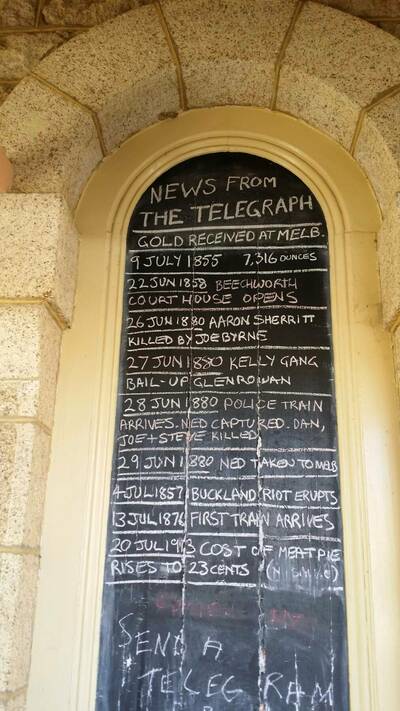 NEWS FROM
THE TELEGRAPH
GOLD RECEIVED AT MELB.
9 JULY 1855 7,316 OUNCES
22 JUN 1858 BEECHWORTH
COURT HOUSE OPENS
26 JUN 1880 AARON SHERRITT
KILLED BY JOE BYRNE
27 JUN 1880 KELLY GANG
BAIL-UP GLENROWAN
28 JUN 1880 POLICE TRAIN
ARRIVES. NED CAPTURED. DAN,
JOE + STEVE KILLED
29 JUN 1880 NED TAKEN TO MELB
4 JUL 1857 BUCKLAND RIOT ERUPTS
13 JUL 1876 FIRST TRAIN ARRIVES
20 JUL 1913 COST OF MEAT PIE
RISES TO 23 CENTS
SEND A
TELEGRAM